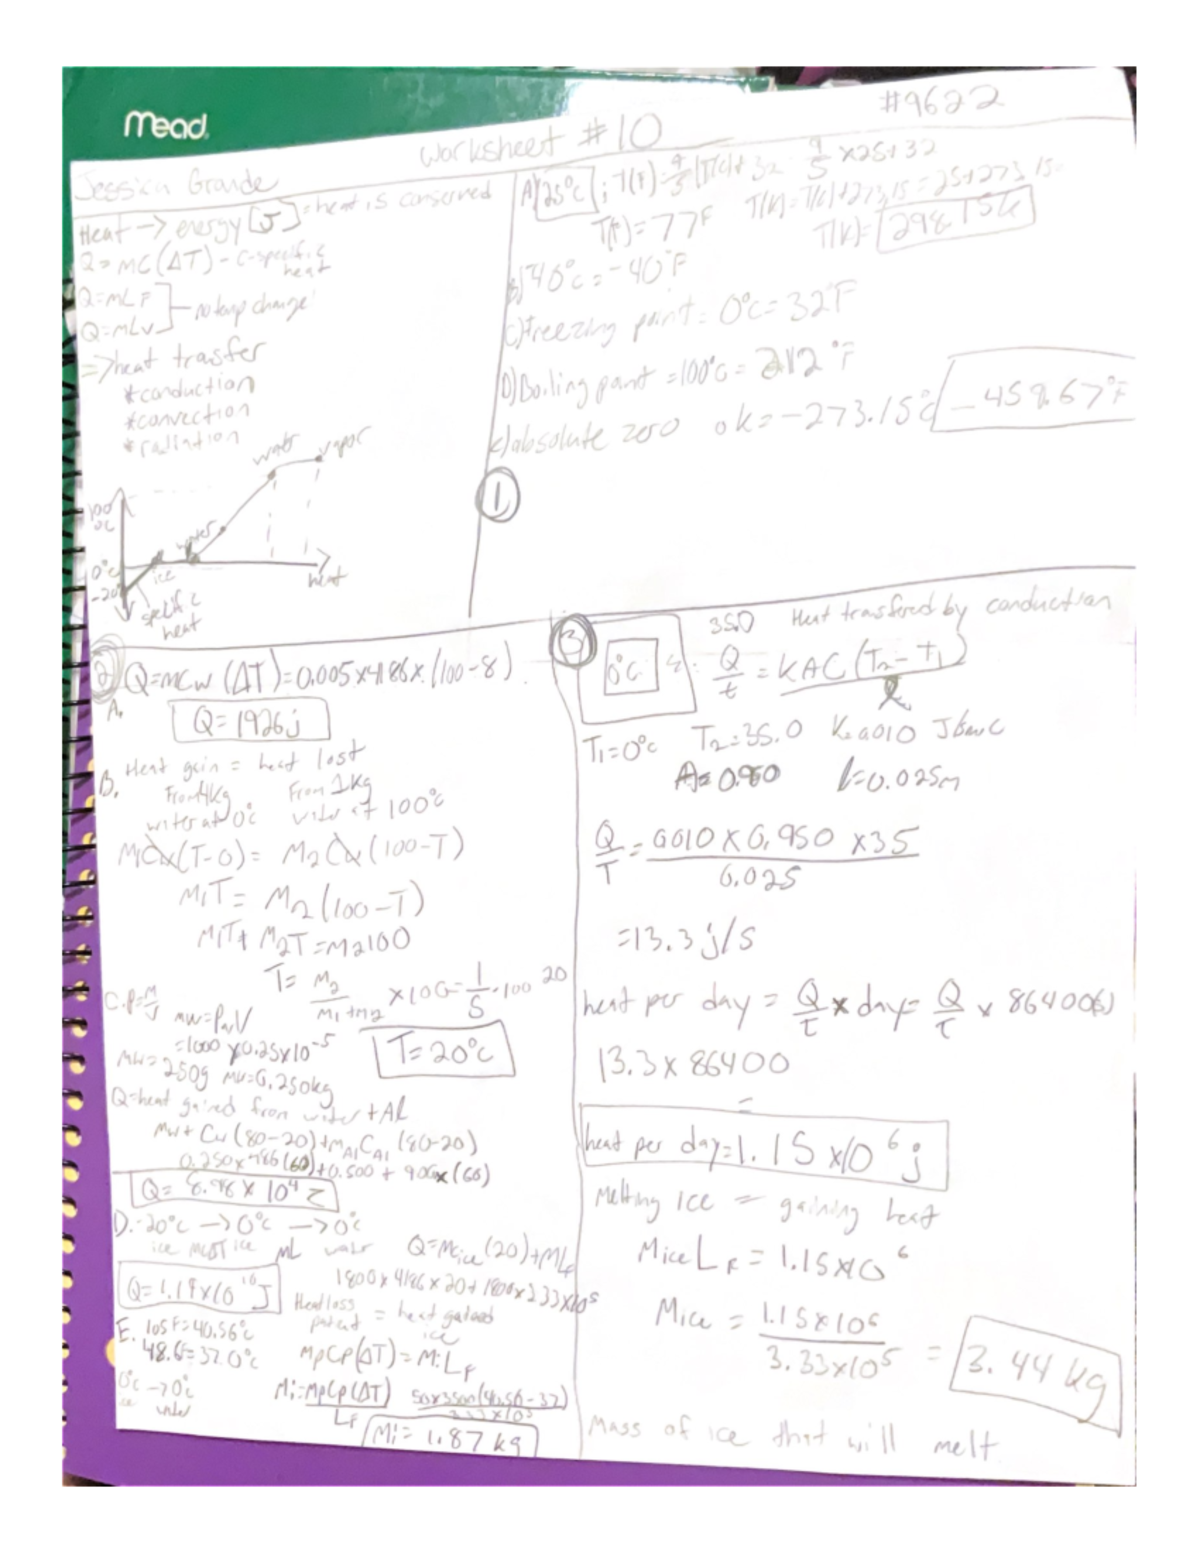 Mead
#9622
Worksheet #10
Jessica Grande
Heat -> energy [J] = heat is conserved
Q = MC(ΔT) - C-specific heat
Q=MLF
Q=MLv
no temp change!
=> heat trasfer
*conduction
*convection
*radiation
water vapor
100 °C
water
0°C
ice
heat
-20
specific heat
A) 25°C ; T(F) = 9/5 T(C)+32 9/5 x25+32
T(F)=77F T(K)=T(C)+273.15=25+273.15=
T(K)=298.15K
B) -40°C = -40°F
C) Freezing point = 0°C = 32°F
D) Boiling point = 100°C = 212°F
E) absolute zero 0K = -273.15°C -459.67°F
1
2
Q=MCw (ΔT)=0.005x4186x(100-8)
A.
Q= 1926j
B. Heat gain = heat lost
From 4kg From 1kg
water at 0°C water at 100°C
M1Cw(T-0) = M2Cw(100-T)
M1T = M2(100-T)
M1T+M2T=M2100
T= M2/(M1+M2) x100=1/5·100 20
T=20°C
C. P=M/V
Mw=PwV
=1000 x0.25x10^-5
Mw=250g Mw=0.250kg
Q=heat gained from water + Al
Mw+Cw(80-20)+MAlCAl(80-20)
Q= 8.98 x 10^4 Z
D. -20°C -> 0°C -> 0°C
ice melt ice water Q=MCice(20)+MLF
1800x4186x20+1800x333x10^5
Q=1.19x10^10 J
Heat loss patient = heat gained ice
E. 105F=40.56°C
MpCp(ΔT)=MiLF
0°C -> 0°C
ice water
Mi=MpCp(ΔT)/LF 50x3500(40.56-37)/3.33x10^5
Mi= 1.87 kg
3
35.0 Heat transfered by conduction
0°C
Q/t = KAC(T2-T1)/l
T1=0°C T2=35.0 K=0.010
A=0.950 l=0.025m
Q/T = 0.010 x 0.950 x35 / 0.025
=13.3 j/s
heat per day = Q/t x day= Q/t x 86400(s)
13.3 x 86400
=
heat per day=1.15 x10^6 j
Melting ice = gaining heat
Mice LF = 1.15x10^6
Mice = 1.15x10^6 / 3.33x10^5 = 3.44 kg
Mass of ice that will melt.